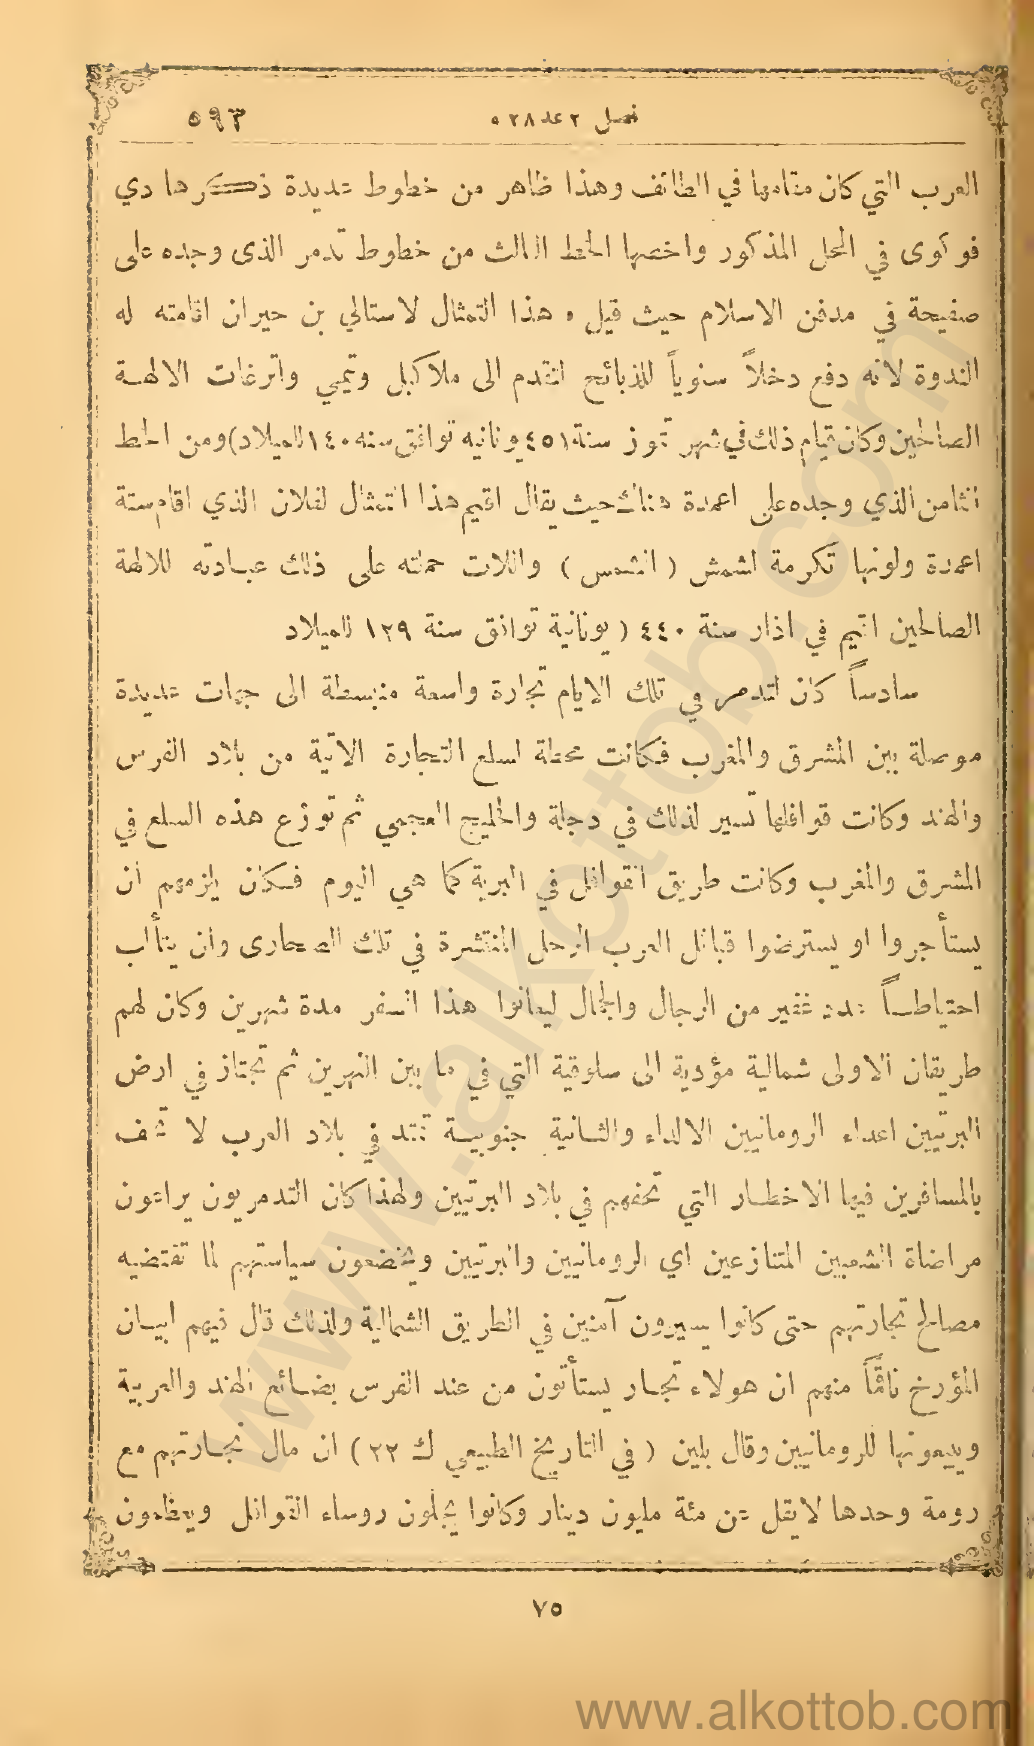 فصل ٢ عد ٥٢٨ ٥٩٣
العرب التي كان مقامها في الطائف وهذا ظاهر من خطوط عديدة ذكرها دي
فوكوى في المحل المذكور واخصها الخط الثالث من خطوط تدمر الذى وجده على
صفيحة في مدفن الاسلام حيث قيل ، هذا التمثال لاستالي بن حيران اقامته له
الندوة لانه دفع دخلاً سنوياً للذبائح لتقدم الى ملاكبل وتيمي واترغات الالهة
الصالحين وكان قيام ذلك في شهر تموز سنة ٤٥١ يونانيه توافق سنه ١٤٠ للميلاد) ومن الخط
الثامن الذي وجده على اعمدة هناك حيث يقال اقيم هذا التمثال لفلان الذي اقام ستة
اعمدة ولونها تكرمة لشمش ( الشمس ) واللات حملته على ذلك عبادته للالهة
الصالحين اقيم في اذار سنة ٤٤٠ ( يونانية توافق سنة ١٢٩ للميلاد
سادساً كان لتدمر في تلك الايام تجارة واسعة منبسطة الى جهات عديدة
موصلة بين المشرق والمغرب فكانت محطة لسلع التجارة الاتية من بلاد الفرس
والهند وكانت قوافلها تسير لذلك في دجلة والخليج العجمي ثم توزع هذه السلع في
المشرق والمغرب وكانت طريق القوافل في البرية كما هي اليوم فكان يلزمهم ان
يستأجروا او يسترضوا قبائل العرب الرحل المنتشرة في تلك الصحارى وان يتأب
احتياطاً عدد غفير من الرجال والجمال ليعانوا هذا السفر مدة شهرين وكان لهم
طريقان الاولى شمالية مؤدية الى سلوقية التي في ما بين النهرين ثم تجتاز في ارض
البرتيين اعداء الرومانيين الالداء والثانية جنوبية تمتد في بلاد العرب لا تحف
بالمسافرين فيها الاخطار التي تحفهم في بلاد البرتيين ولهذا كان التدمريون يراعون
مراضاة الشعبين المتنازعين اي الرومانيين والبرتيين ويخضعون سياستهم لما تقتضيه
مصالح تجارتهم حتى كانوا يسيرون آمنين في الطريق الشمالية ولذلك قال فيهم ابيان
المؤرخ ناقماً منهم ان هولاء تجار يستأتون من عند الفرس بضائع الهند والعربية
ويبيعونها للرومانيين وقال بلين ( في التاريخ الطبيعي ك ٢٢ ) ان مال تجارتهم مع
رومة وحدها لا يقل عن مئة مليون دينار وكانوا يجلون روساء القوافل ويعظمون
٧٥
www.alkottob.com
www.alkottob.com